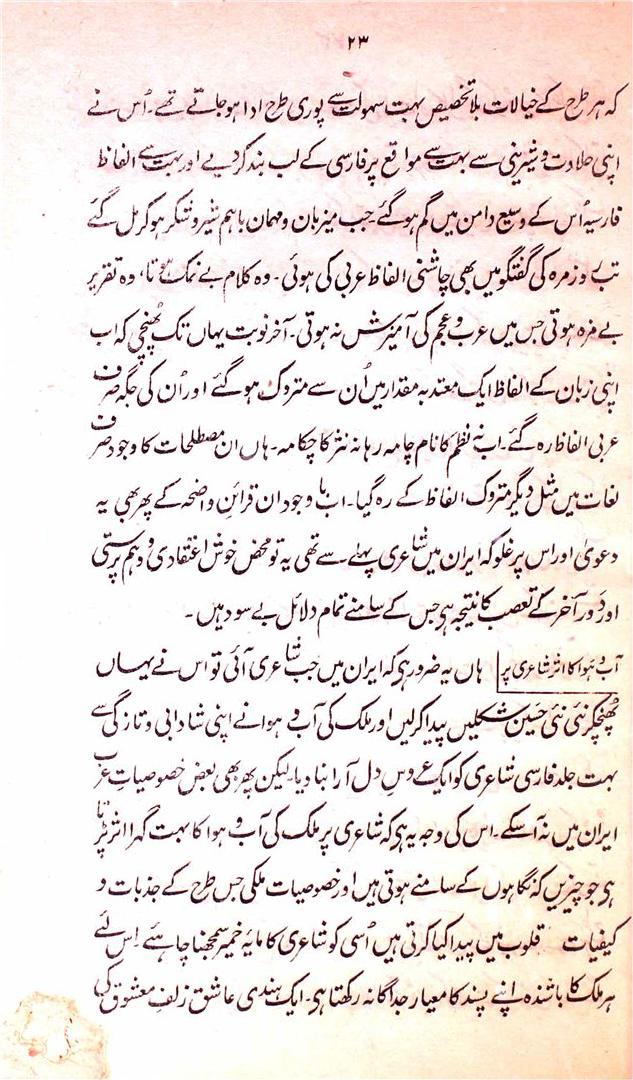 ۲۳
کہ ہر طرح کے خیالات بلا تخصیص بہت سہولت سے پوری طرح ادا ہو جاتے تھے۔ اُس نے
اپنی حلاوت و شیرینی سے بہت سے مواقع پر فارسی کے لب بند کر دیے اور بہت سے الفاظ
فارسیہ اُس کے وسیع دامن میں گم ہو گئے۔ جب میزبان و مہمان باہم شیر و شکر ہو کر مل گئے
تب روزمرہ کی گفتگو میں بھی چاشنی الفاظ عربی کی ہوئی۔ وہ کلام بے نمک ہوتا، وہ تقریر
بے مزہ ہوتی جس میں عرب و عجم کی آمیزش نہ ہوتی۔ آخر نوبت یہاں تک پُہنچی کہ اب
اپنی زبان کے الفاظ ایک معتد بہ مقدار میں اُن سے متروک ہو گئے اور اُن کی جگہ صرف
عربی الفاظ رہ گئے۔ اب نہ نظم کا نام چامہ رہا نہ نثر کا چکامہ۔ ہاں ان مصطلحات کا وجود صرف
لغات میں مثل دیگر متروک الفاظ کے رہ گیا۔ اب با وجود ان قرائن واضحہ کے پھر بھی یہ
دعویٰ اور اس پر غلو کہ ایران میں شاعری پہلے سے تھی یہ تو محض خوش اعتقادی و وہم پرستی
اور دَور آخر کے تعصب کا نتیجہ ہی جس کے سامنے تمام دلائل بے سود ہیں۔
آب و ہوا کا اثر شاعری پر ہاں یہ ضرور ہی کہ ایران میں جب شاعری آئی تو اس نے یہاں
پُھنچکر نئی نئی حَسین شکلیں پیدا کر لیں اور ملک کی آب و ہوا نے اپنی شادابی و تازگی سے
بہت جلد فارسی شاعری کو ایک عروسِ دل آرا بنا دیا۔ لیکن پھر بھی بعض خصوصیاتِ عرب
ایران میں نہ آ سکے۔ اس کی وجہ یہ ہی کہ شاعری پر ملک کی آب و ہوا کا بہت گہرا اثر پڑتا
ہی جو چیزیں کہ نگاہوں کے سامنے ہوتی ہیں اور خصوصیات ملکی جس طرح کے جذبات و
کیفیات قلوب میں پیدا کیا کرتی ہیں اُسی کو شاعری کا مایۂ خمیر سمجھنا چاہئے اِس لئے
ہر ملک کا باشندہ اپنے پسند کا معیار جداگانہ رکھتا ہی۔ ایک ہندی عاشق زلفِ معشوق کی